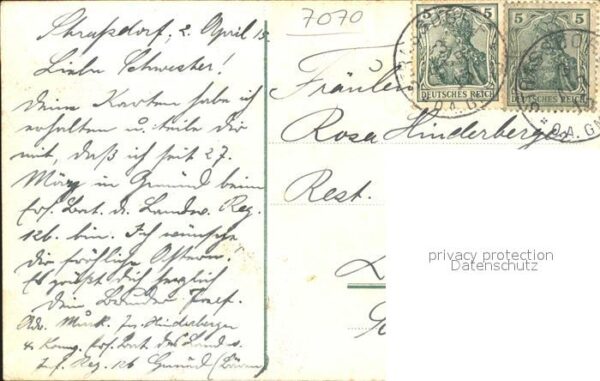 7070
Straßdorf, 2. April 15
Liebe Schwester!
deine Karten habe ich
erhalten u. teile dir
mit, daß ich seit 27.
März in Gmünd beim
Ers. Bat. d. Landw. Reg.
126. bin. Ich wünsche
dir fröhliche Ostern.
Es grüßt dich herzlich
dein Bruder Josef.
Hinderberger
4. Komp. Ers. Bat. des Landw.
Inf. Reg. 126 Gmünd
5
DEUTSCHES REICH
5
DEUTSCHES REICH
STRASSDORF
O.A. GM
Fräulein
Rosa Hinderberger
Rest.
privacy protection
Datenschutz